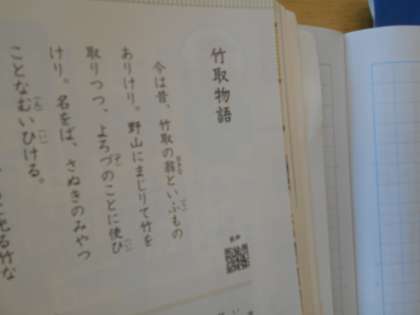 竹取物語
今は昔、竹取の翁といふもの
ありけり。野山にまじりて竹を
取りつつ、よろづのことに使ひ
けり。名をば、さぬきのみやつ
ことなむいひける。
光る竹な